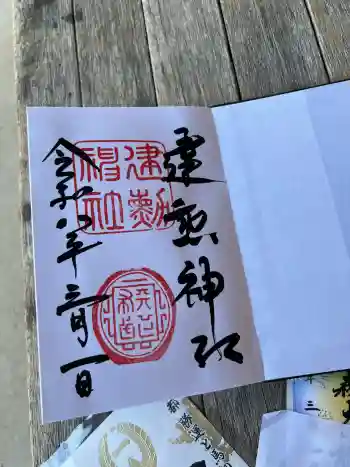 建勲神社
建勲
神社
令和八年三月一日